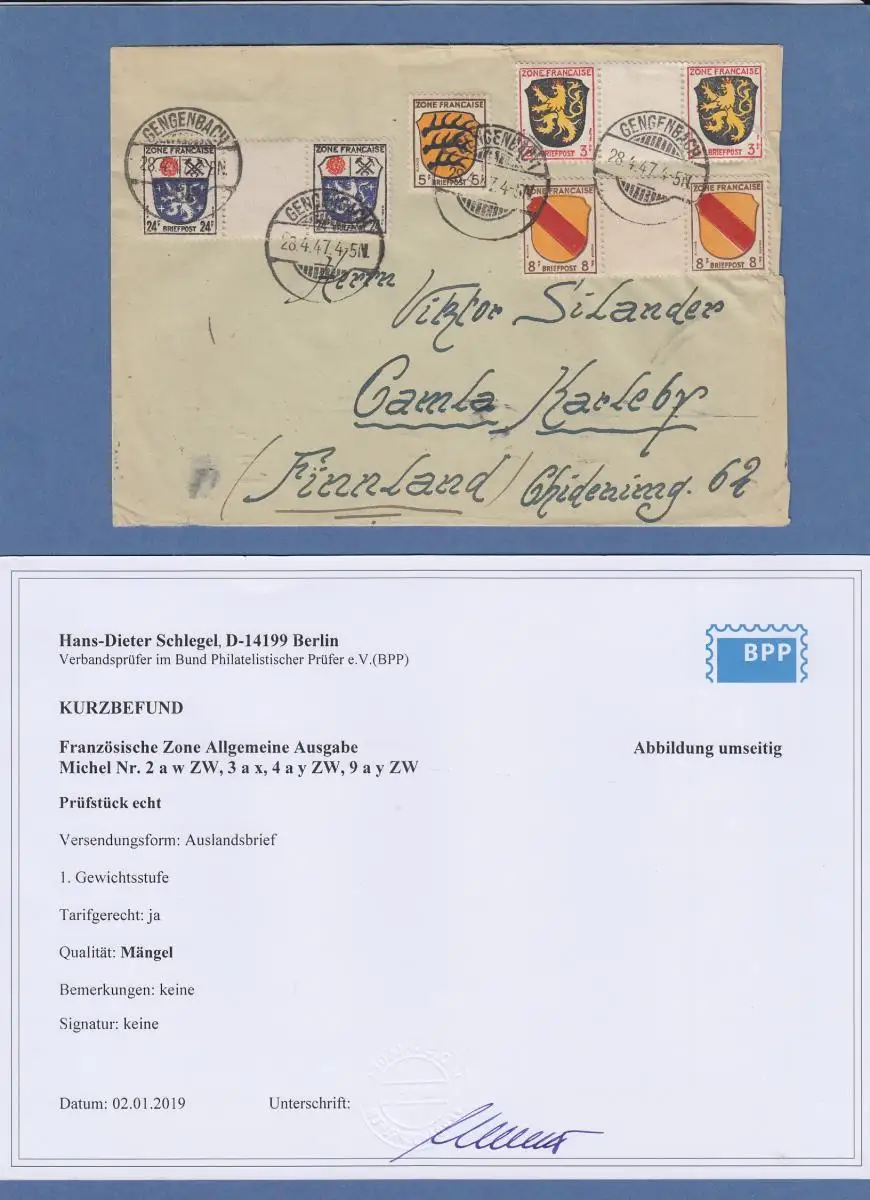 ZONE FRANCAISE
3F BRIEFPOST 3F
ZONE FRANCAISE
BRIEFPOST 3F
ZONE FRANCAISE
5F BRIEFPOST 5F
ZONE FRANCAISE
24F BRIEFPOST 24F
ZONE FRANCAISE
BRIEFPOST
8F BRIEFPOST 8F
ZONE FRANCAISE
8F BRIEFPOST 8F
GENGENBACH
28.4.47.4-5N.
GENGENBACH
28.4.47.4-5N.
GENGENBACH
GENGENBACH
28.4.47.4-5N.
Herrn
Viktor Silander
Gamla Karleby
(Finnland)
62
Hans-Dieter Schlegel, D-14199 Berlin
Verbandsprüfer im Bund Philatelistischer Prüfer e.V.(BPP)
BPP
KURZBEFUND
Französische Zone Allgemeine Ausgabe
Abbildung umseitig
Michel Nr. 2 a w ZW, 3 a x, 4 a y ZW, 9 a y ZW
Prüfstück echt
Versendungsform: Auslandsbrief
1. Gewichtsstufe
Tarifgerecht: ja
Qualität: Mängel
Bemerkungen: keine
Signatur: keine
Datum: 02.01.2019
Unterschrift: